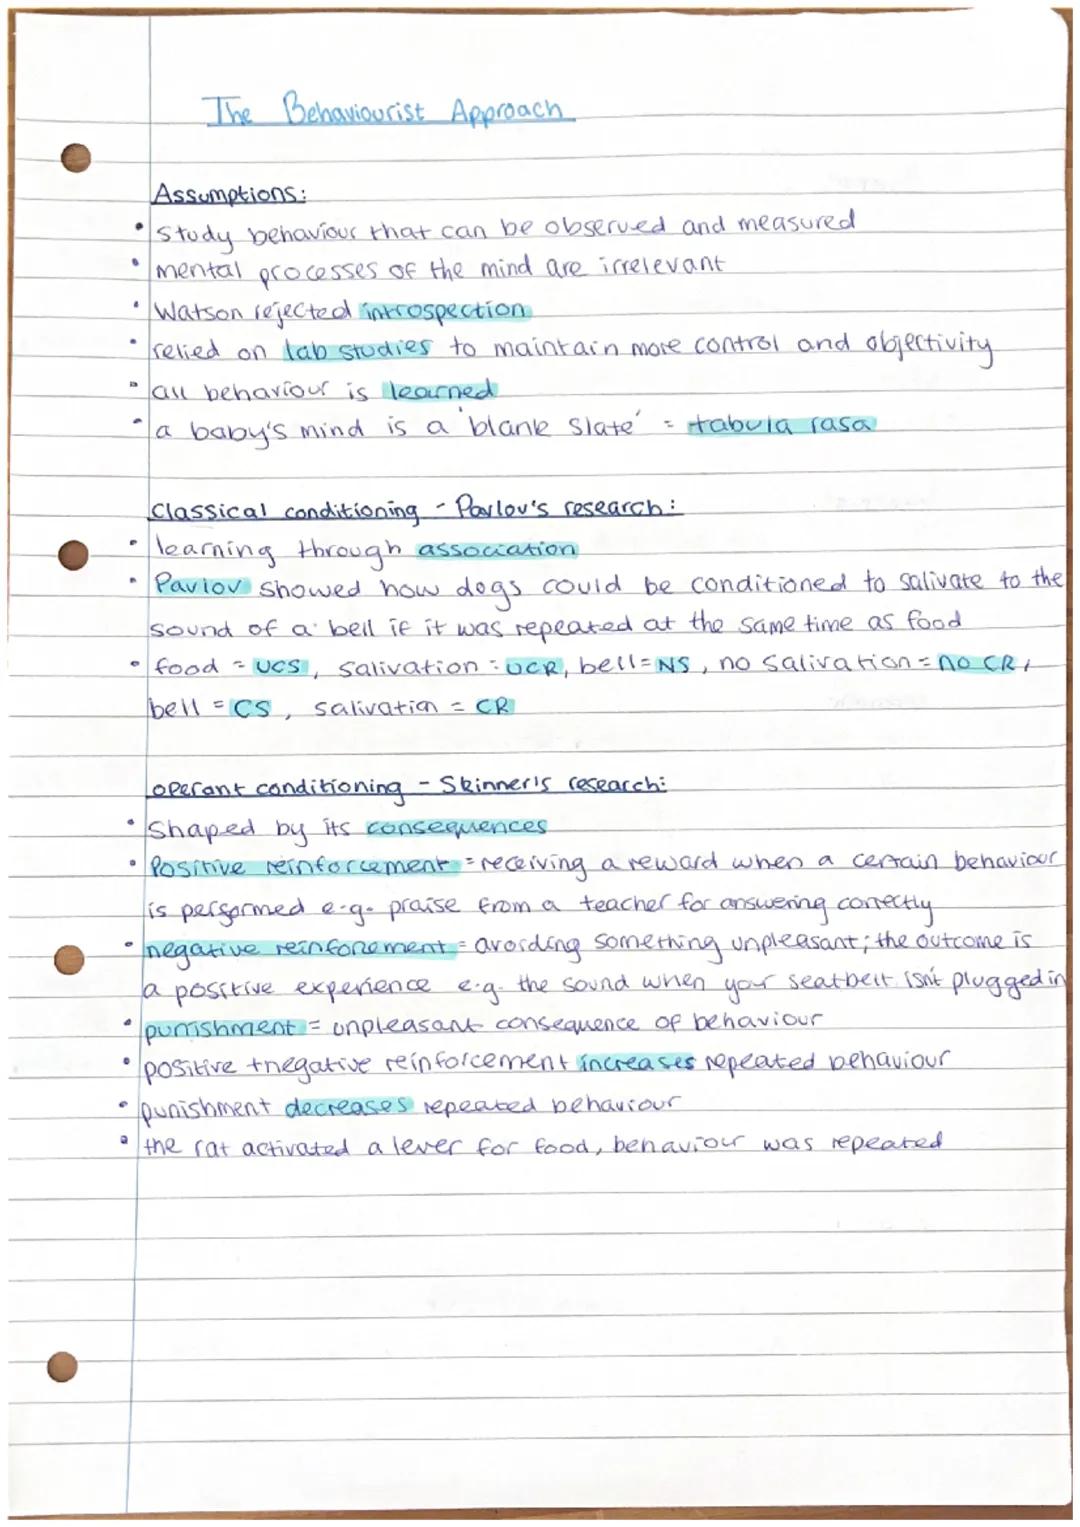 The Behaviourist Approach
Assumptions:
• study behaviour that can be observed and measured
• mental processes of the mind are irrelevant
• Watson rejected introspection
• relied on lab studies to maintain more control and objectivity
• all behaviour is learned
• a baby's mind is a 'blank slate' = tabula rasa
Classical conditioning - Pavlov's research:
• learning through association
• Pavlov showed how dogs could be conditioned to salivate to the
sound of a bell if it was repeated at the same time as food
• food = UCS, salivation = UCR, bell = NS, no salivation = no CR,
bell = CS, salivation = CR
operant conditioning - Skinner's research:
• Shaped by its consequences
• Positive reinforcement = receiving a reward when a certain behaviour
is performed e.g. praise from a teacher for answering correctly
• negative reinforcement = avoiding something unpleasant; the outcome is
a positive experience e.g. the sound when your seatbelt isn't plugged in
• punishment = unpleasant consequence of behaviour
• positive + negative reinforcement increases repeated behaviour
• punishment decreases repeated behaviour
• the rat activated a lever for food, behaviour was repeated